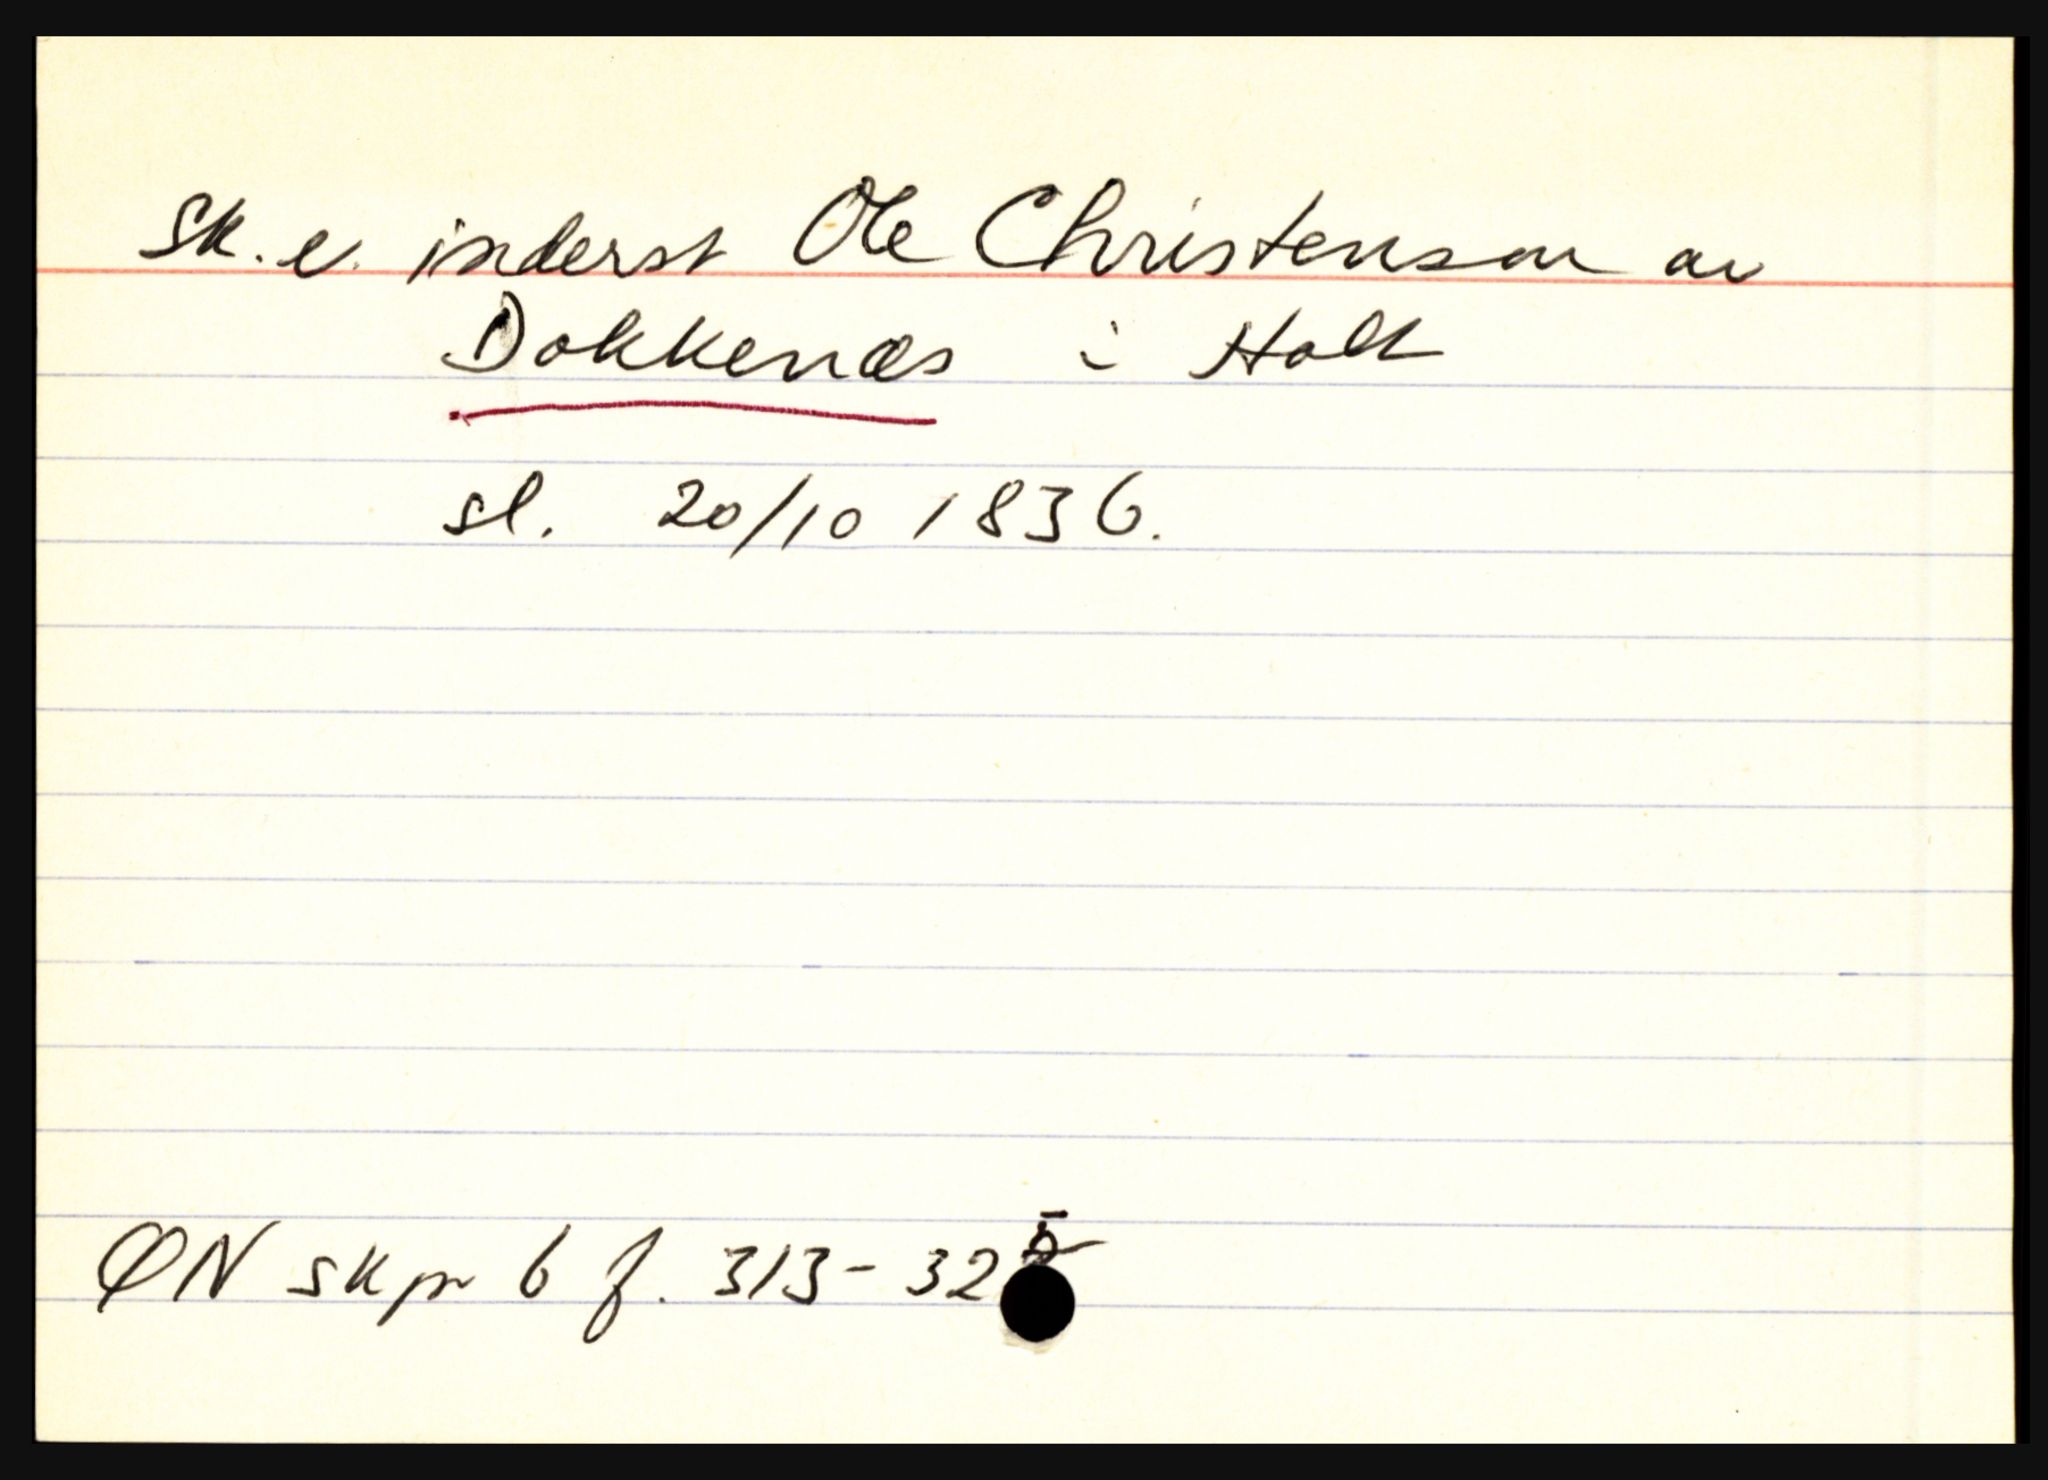 Sk. e. inderst Ole Christensen av
Dokkenæs i Holt
sl. 20/10 1836.
ØN skpr 6 f. 313-32